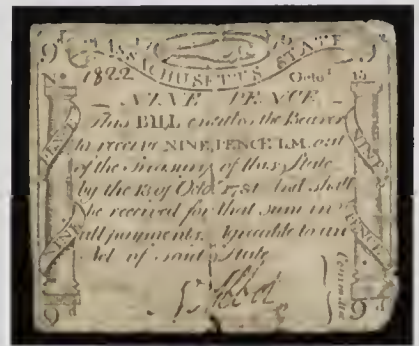 9 MASSACHUSETTS STATE 9
1822 Octo.r 18
NINE PENCE
This BILL entitles the Bearer
to receive NINE PENCE L.M. out
of the Treasury of this State
by the 18 of Octo.r 1781 and shall
be received for that sum in
all payments. Agreeable to an
Act of said State
NINE PENCE
NINE PENCE
Committee
9 9